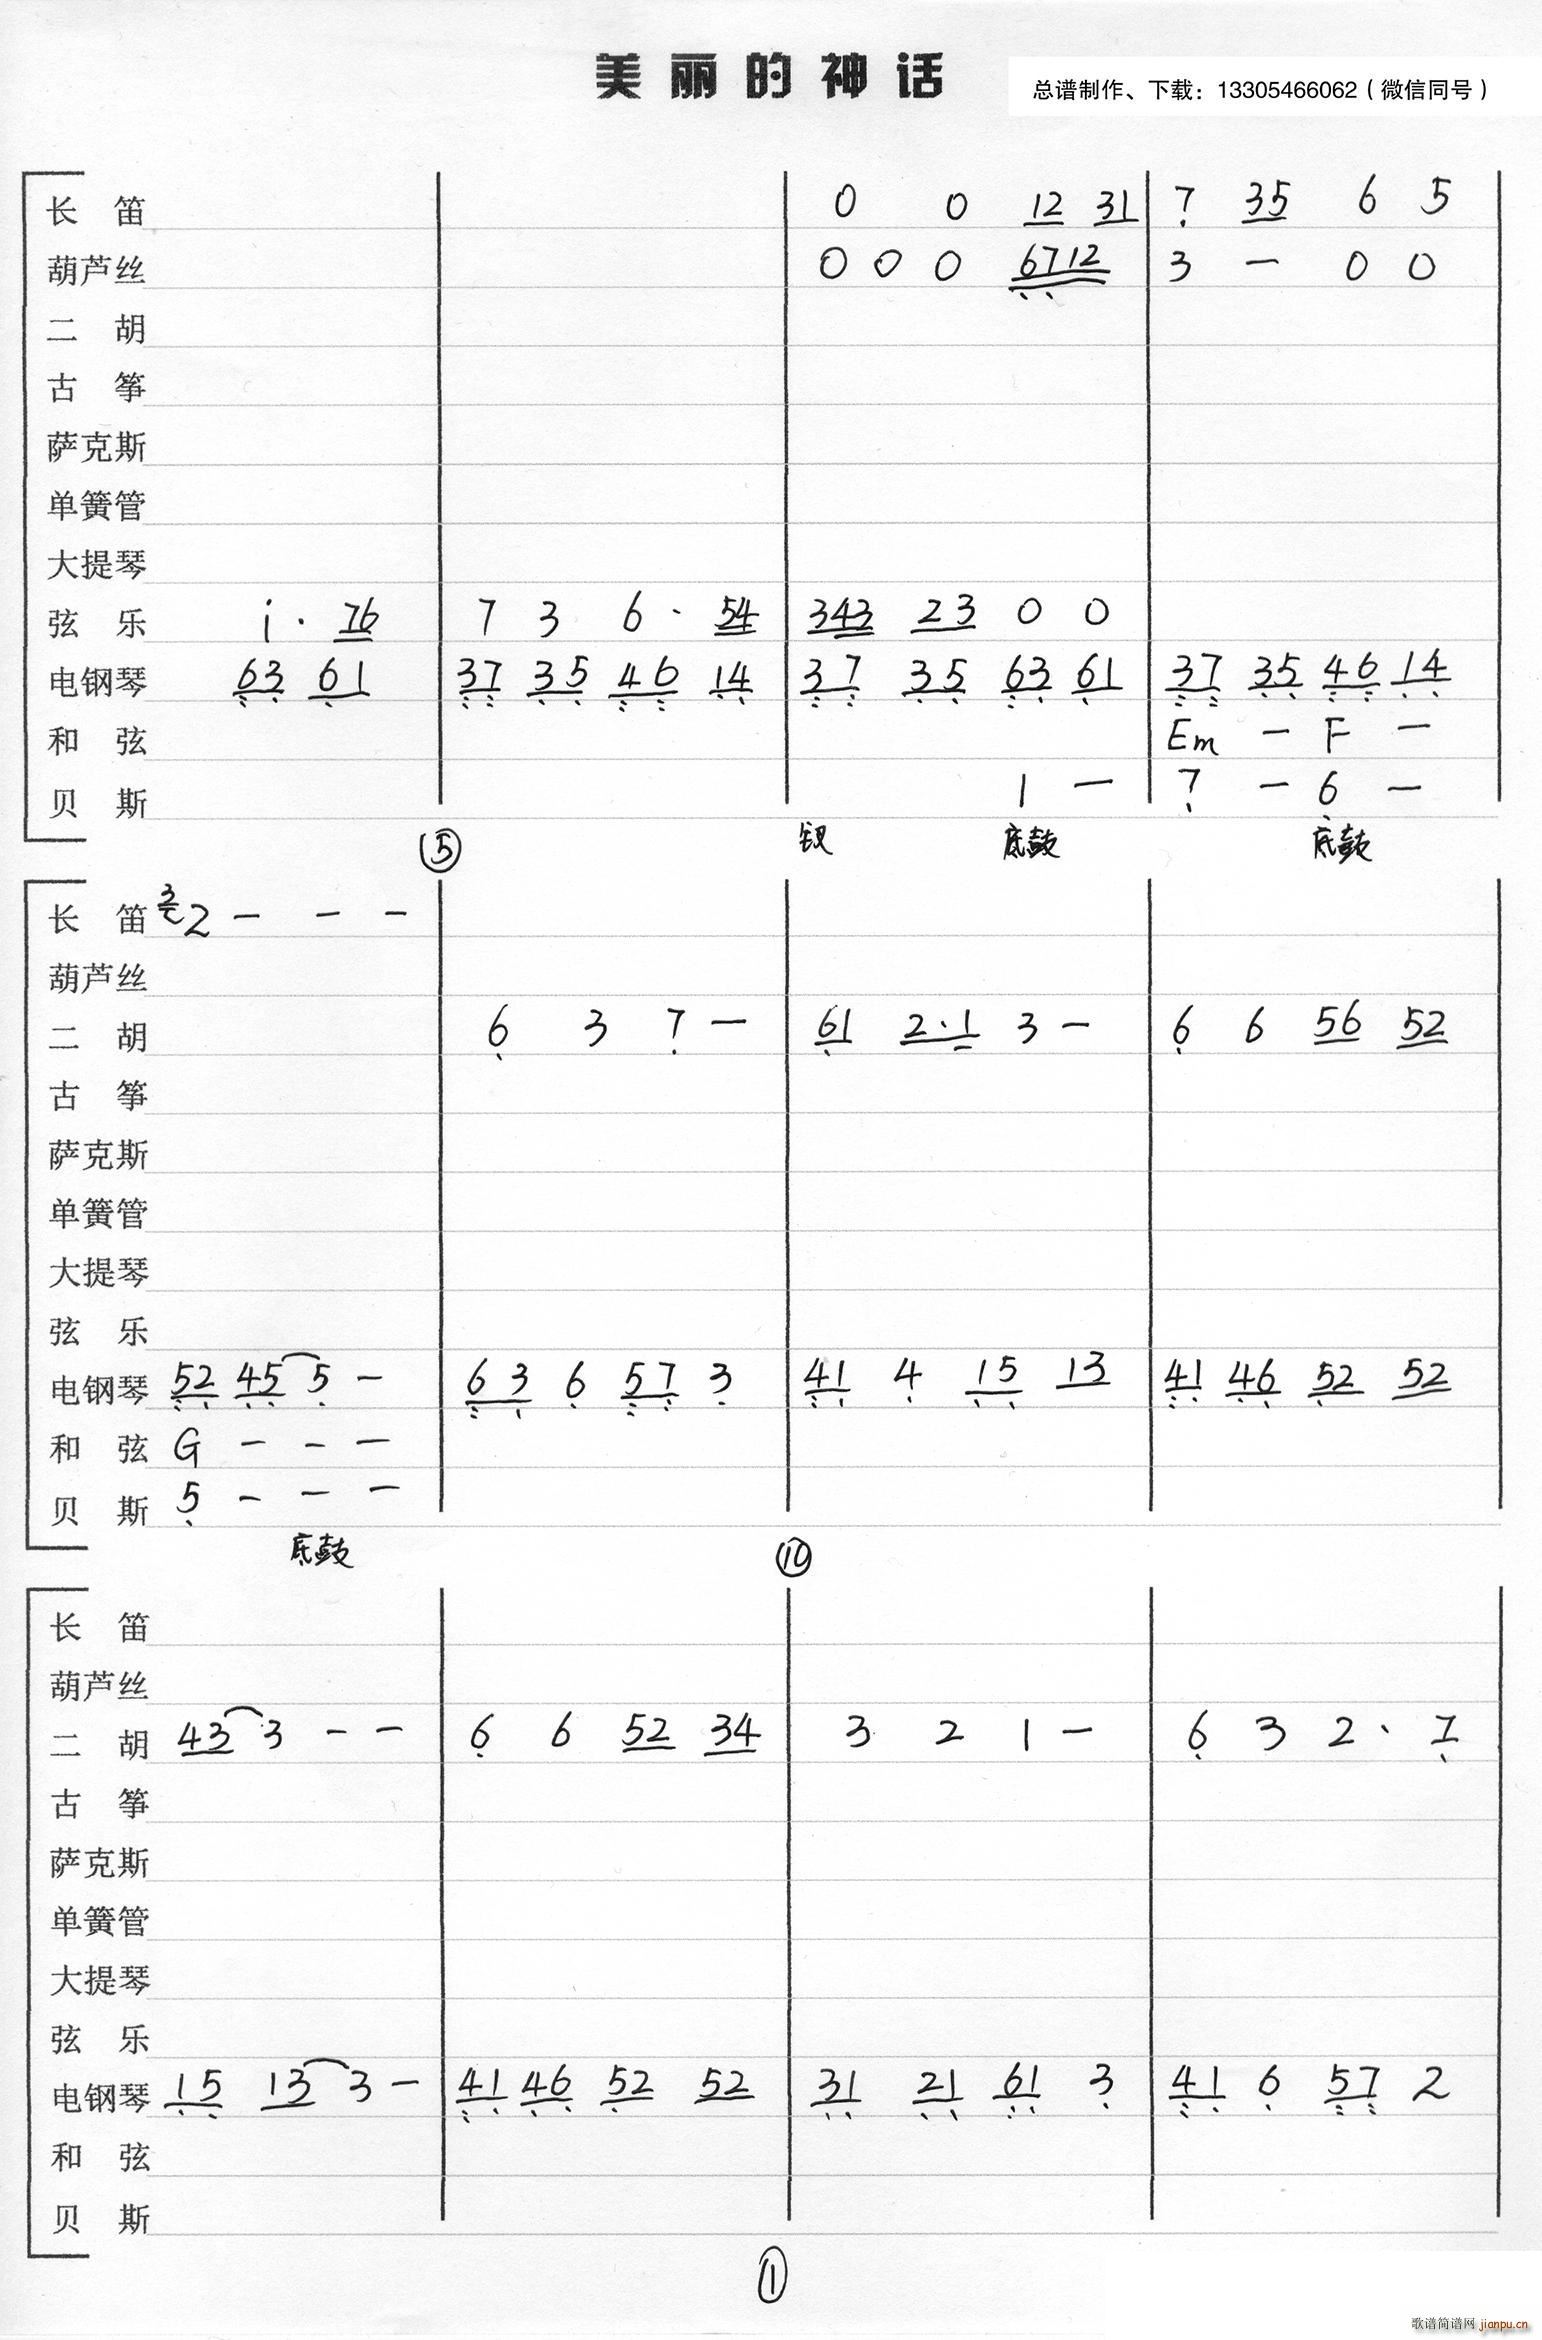 美丽的神话
总谱制作、下载：13305466062（微信同号）
长 笛 0 0 12 31 7 35 6 5
葫芦丝 0 0 0 6712 3 — 0 0
二 胡
古 筝
萨克斯
单簧管
大提琴
弦 乐 i · 76 7 3 6 · 54 343 23 0 0
电钢琴 63 61 37 35 46 14 37 35 63 61 37 35 46 14
和 弦 Em — F —
贝 斯 1 — 7 — 6 —
⑤ 钗 底鼓 底鼓
长 笛 3 2 — — —
葫芦丝
二 胡 6 3 7 — 61 2·1 3 — 6 6 56 52
古 筝
萨克斯
单簧管
大提琴
弦 乐
电钢琴 52 45 5 — 63 6 57 3 41 4 15 13 41 46 52 52
和 弦 G — — —
贝 斯 5 — — —
底鼓 ⑩
长 笛
葫芦丝
二 胡 43 3 — — 6 6 52 34 3 2 1 — 6 3 2 · 7
古 筝
萨克斯
单簧管
大提琴
弦 乐
电钢琴 15 13 3 — 41 46 52 52 31 21 61 3 41 6 57 2
和 弦
贝 斯
①
歌谱简谱网 jianpu.cn